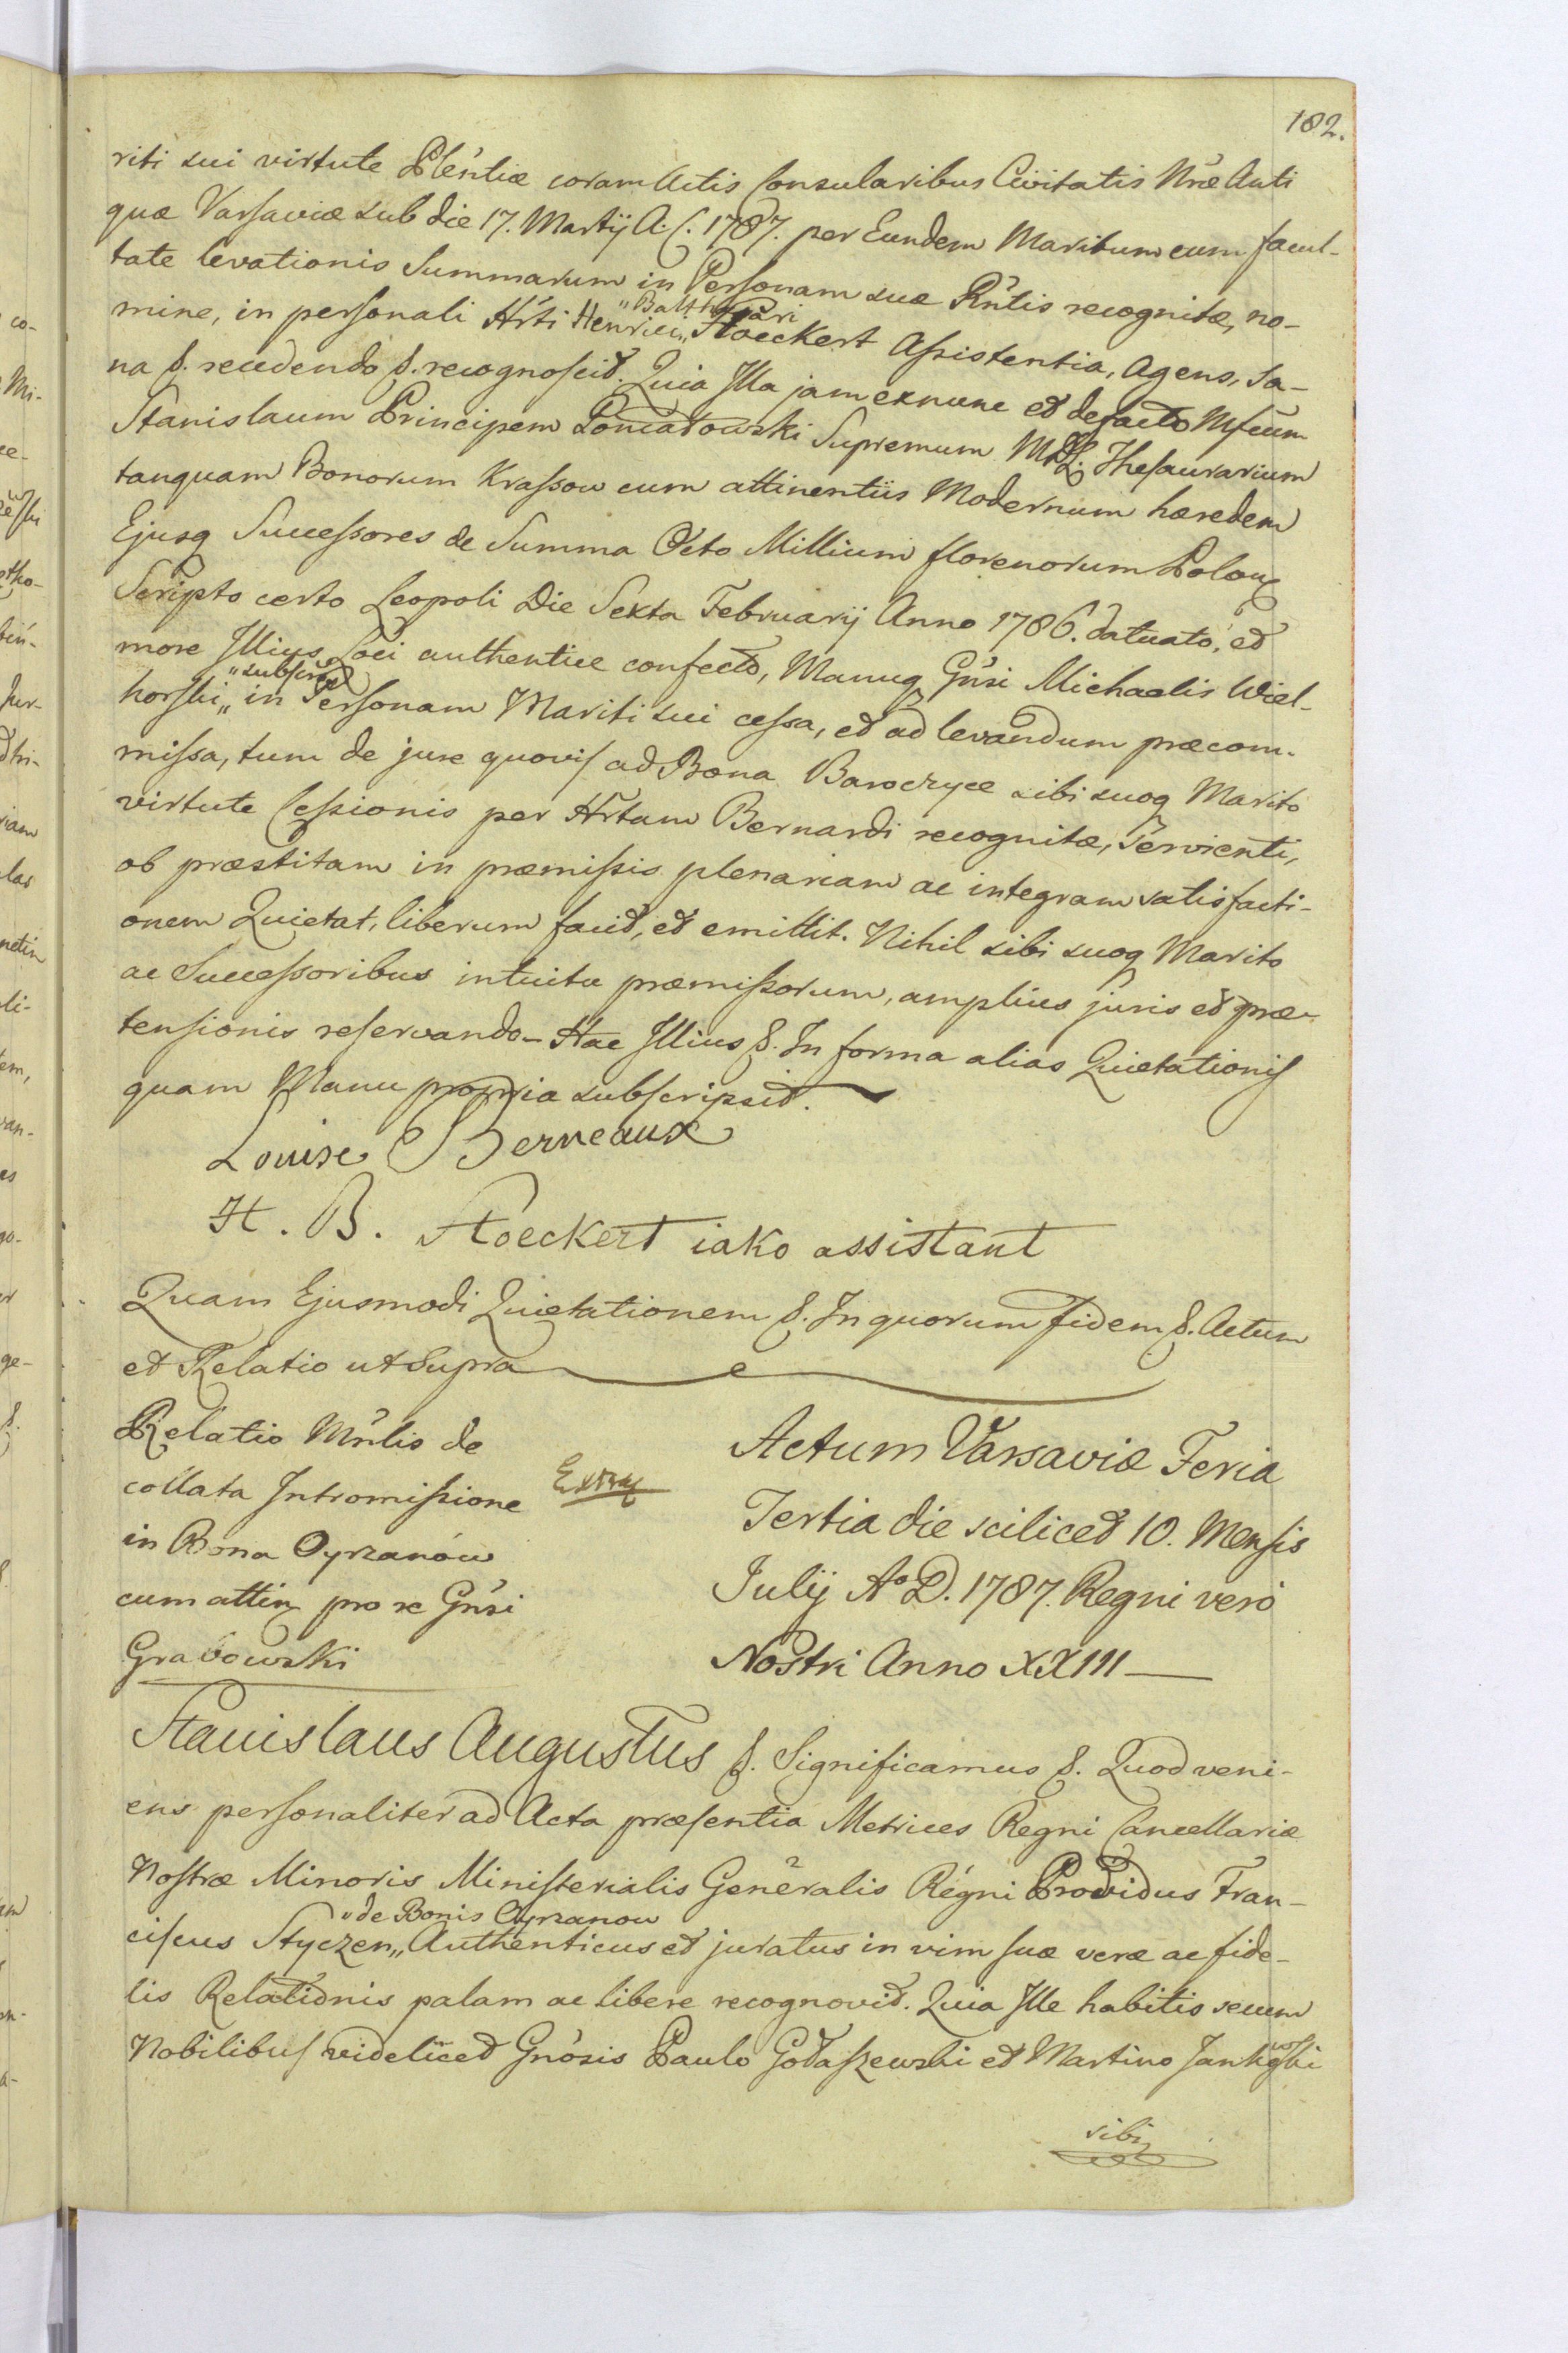 182.
riti sui virtute Pleñtiæ coram Actis Consularibus Civitatis Nr̃æ Anti
quæ Varsaviæ sub die 17. Martij A. C. 1787. per Eundem Maritum cum facul-
tate levationis Summarum in Personam suæ Rñtis recognitæ, no-
mine, in personali Hr̃ti Henrici „Balthasari„ Stoeckert Assistentia, Agens, Sa-
na &. recedendo &. recognoscit. Quia Illa jam exnunc et defacto Mſcum
Stanislaum Principem Poniatowski Supremum M.D.L. Thesaurarium
tanquam Bonorum Krassow cum attinentiis Modernum hæredem
Ejusq Successores de Summa Octo Millium florenorum Polonq
Scripto certo Leopoli Die Sexta Februarij Anno 1786. datuato, et
more Illius Loci authentice confecto, Manuq Gñsi Michaelis Wiel-
horski „subscrip„ in Personam Mariti sui cessa, et ad levandum præcom-
missa, tum de jure quovis ad Bona Baroczyce sibi suoq Marito
virtute Cessionis per Hr̃tum Bernardi recognitæ, servienti,
ob præstitam in præmissis plenariam ac integram satisfacti-
onem Quietat, liberum facit, et emittit. Nihil sibi suoq Marito
ac Successoribus intuitu præmissorum, amplius juris et præ-
tensionis reservando- Hac Illius &. In forma alias Quietationis
quam Manu propria subscripsit.
Louise Berneaux
H. B. Stoeckert iako assistant
Quam Ejusmodi Quietationem &. In quorum fidem &. Actum
et Relatio ut Supra
Relatio Mñlis de
collata Intromissione
in Bona Oyrzanow
cum attinq pro se Gñsi
Grabowski
Extraq
Actum Varsaviæ Feria
Tertia die scilicet 10. Mensis
Julij Aº D. 1787. Regni vero
Nostri Anno XXIII
Stanislaus Augustus &. Significamus &. Quod veni-
ens personaliter ad Acta præsentia Metrices Regni Cancellariæ
Nostræ Minoris Ministerialis Generalis Regni Providus Fran-
ciscus Styczen „de Bonis Oyrzanow„ Authenticus et juratus in vim suæ veræ ac fide-
lis Relationis palam ac libere recognovit. Quia Ille habitis secum
Nobilibus videlicet Gñosis Paulo Gołaszewski et Martino Jankowski
sibi